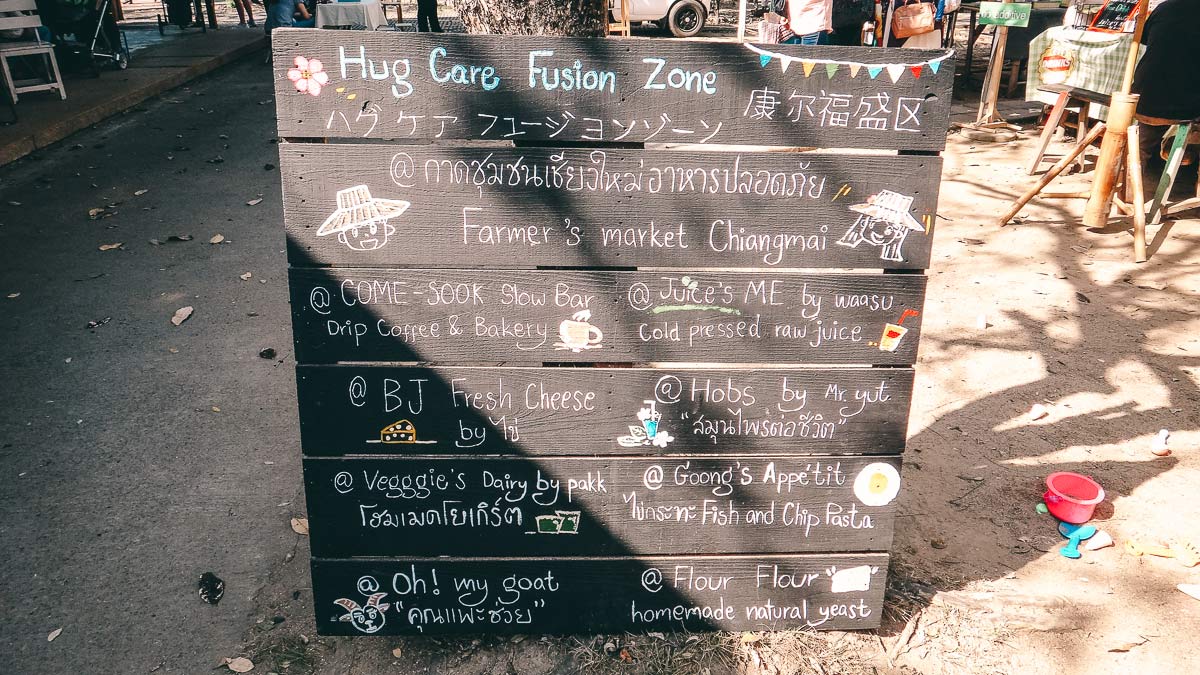 Hug Care Fusion Zone
ハグ ケア フュージョンゾーン 康尔福盛区
@ กาดชุมชนเชียงใหม่อาหารปลอดภัย
Farmer's market Chiangmai
@ COME-SOOK Slow Bar
Drip Coffee & Bakery
@ Juice's ME by waasu
Cold pressed raw juice
@ BJ Fresh Cheese
by ไข่
@ Hobs by Mr yut
"สมุนไพรต่อชีวิต"
@ Vegggie's Dairy by pakk
โฮมเมดโยเกิร์ต
@ Goong's Appétit
ไข่กระทะ Fish and Chip Pasta
@ Oh! my goat
"คุณแพะช่วย"
@ Flour Flour
homemade natural yeast